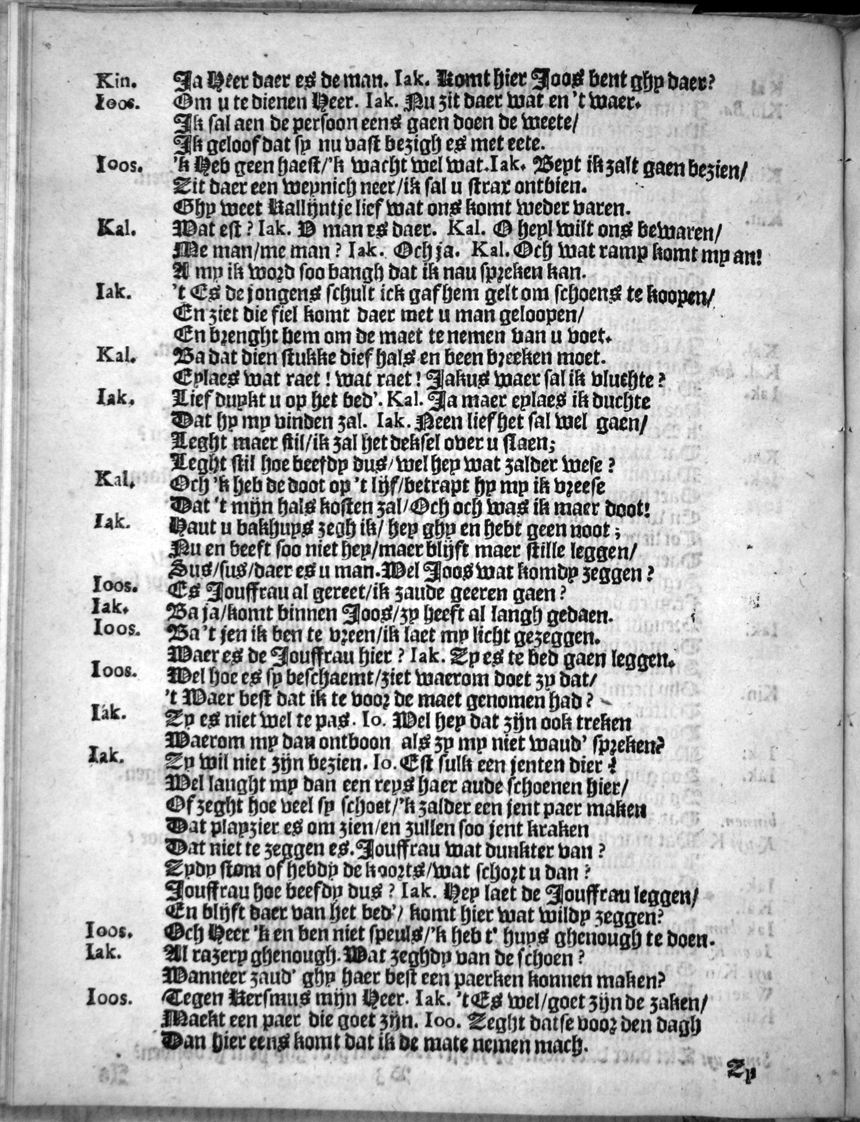 Kin. Ja Heer daer es de man. Iak. Komt hier Joos bent ghy daer?
Ioos. Om u te dienen Heer. Iak. Nu zit daer wat en 't waer.
Ik sal aen de persoon eens gaen doen de weete/
Ik geloof dat sy nu vast bezigh es met eete.
Ioos. 'k Heb geen haest/'k wacht wel wat. Iak. Beyt ik zalt gaen bezien/
Zit daer een weynich neer/ik sal u strax ontbien.
Ghy weet Kallijntje lief wat ons komt weder varen.
Kal. Wat est? Iak. V man es daer. Kal. O heyl wilt ons bewaren/
Me man/me man? Iak. Och ja. Kal. Och wat ramp komt my an!
A my ik word soo bangh dat ik nau spreken kan.
Iak. 't Es de jongens schult ick gaf hem gelt om schoens te koopen/
En ziet die fiel komt daer met u man geloopen/
En brenght hem om de maet te nemen van u voet.
Kal. Ba dat dien stukke dief hals en been breeken moet.
Eylaes wat raet! wat raet! Jakus waer sal ik vluchte?
Iak. Lief duykt u op het bed'. Kal. Ja maer eylaes ik duchte
Dat hy my vinden zal. Iak. Neen lief het sal wel gaen/
Leght maer stil/ik zal het deksel over u slaen;
Leght stil hoe beefdy dus/wel hey wat zalder wese?
Kal. Och 'k heb de doot op 't lijf/betrapt hy my ik vreese
Dat 't mijn hals kosten zal/Och och was ik maer doot!
Iak. Haut u bakhuys zegh ik/ hey ghy en hebt geen noot;
Nu en beeft soo niet hey/maer blijft maer stille leggen/
Sus/sus/daer es u man. Wel Joos wat komdy zeggen?
Ioos. Es Jouffrau al gereet/ik zaude geeren gaen?
Iak. Ba ja/komt binnen Joos/zy heeft al langh gedaen.
Ioos. Ba 't jen ik ben te vreen/ik laet my licht gezeggen.
Waer es de Jouffrau hier? Iak. Zy es te bed gaen leggen.
Ioos. Wel hoe es sy beschaemt/ziet waerom doet zy dat/
't Waer best dat ik te voor de maet genomen had?
Iak. Zy es niet wel te pas. Io. Wel hey dat zijn ook treken
Waerom my dan ontboon als zy my niet waud' spreken?
Iak. Zy wil niet zijn bezien. Io. Est sulk een jenten dier?
Wel langht my dan een reys haer aude schoenen hier/
Of zeght hoe veel sy schoet/'k zalder een jent paer maken
Dat playzier es om zien/en zullen soo jent kraken
Dat niet te zeggen es. Jouffrau wat dunkter van?
Zydy stom of hebdy de koorts/wat schort u dan?
Jouffrau hoe beefdy dus? Iak. Hey laet de Jouffrau leggen/
En blijft daer van het bed'/ komt hier wat wildy zeggen?
Ioos. Och Heer 'k en ben niet speuls/'k heb t' huys ghenough te doen.
Iak. Al razery ghenough. Wat zeghdy van de schoen?
Wanneer zaud' ghy haer best een paerken konnen maken?
Ioos. Tegen Kersmus mijn Heer. Iak. 't Es wel/goet zijn de zaken/
Maekt een paer die goet zijn. Ioo. Zeght datse voor den dagh
Dan hier eens komt dat ik de mate nemen mach.
Zy